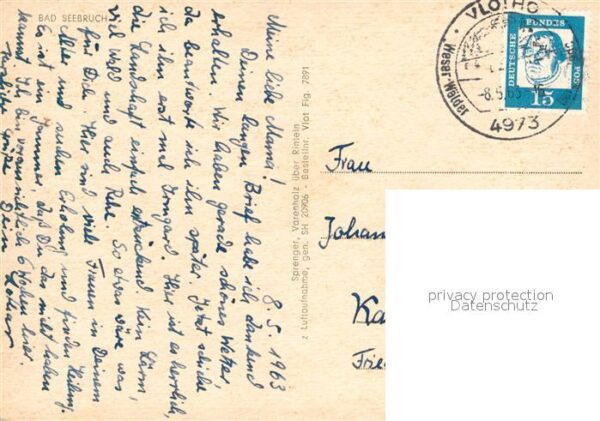 BAD SEEBRUCH
8. 5. 1963
Meine liebe Mama!
Deinen langen Brief habe ich dankend
erhalten. Wir haben gerade schönes Wetter,
da beantworte ich ihn später. Jetzt schicke
ich ihn erst mal Irmgard. Hier ist es herrlich,
die Landschaft einfach Kein Lärm,
viel Wald und auch Ruhe. So etwas wäre was
für Dich. Hier sind viele Frauen in Deinem
Alter und suchen Erholung und finden Heilung.
Es ist ein Jammer, daß Du das nicht haben
kannst. Ich bin voraussichtlich 6 Wochen hier.
Herzliche Grüße Dein
Sprenger, Varenholz über Rinteln
z Luftaufnahme, gen. SH 20906 - Bestellnr Vlot Flg. 7891
VLOTHO
-8.5.63
4973
DEUTSCHE
BUNDES
POST
15
Frau
Johan
Ka
Frie
privacy protection
Datenschutz